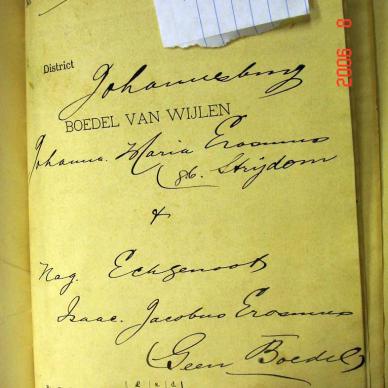 District Johannesburg
BOEDEL VAN WIJLEN
Johanna. Maria Erasmus
(gb. Strijdom
&
Nag. Echgenoot
Isaac. Jacobus Erasmus
(Geen Boedel)
2006 8